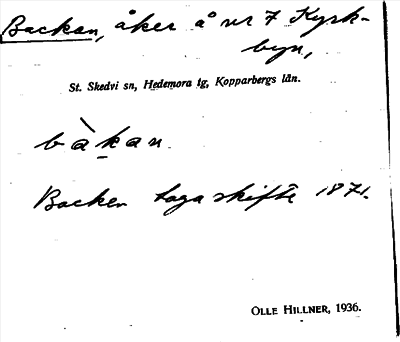 Backan, åker å nr 7 Kyrk-
byn,
St. Skedvi sn, Hedemora tg, Kopparbergs län.
bàkan.
Backen laga skifte 1871.
OLLE HILLNER, 1936.